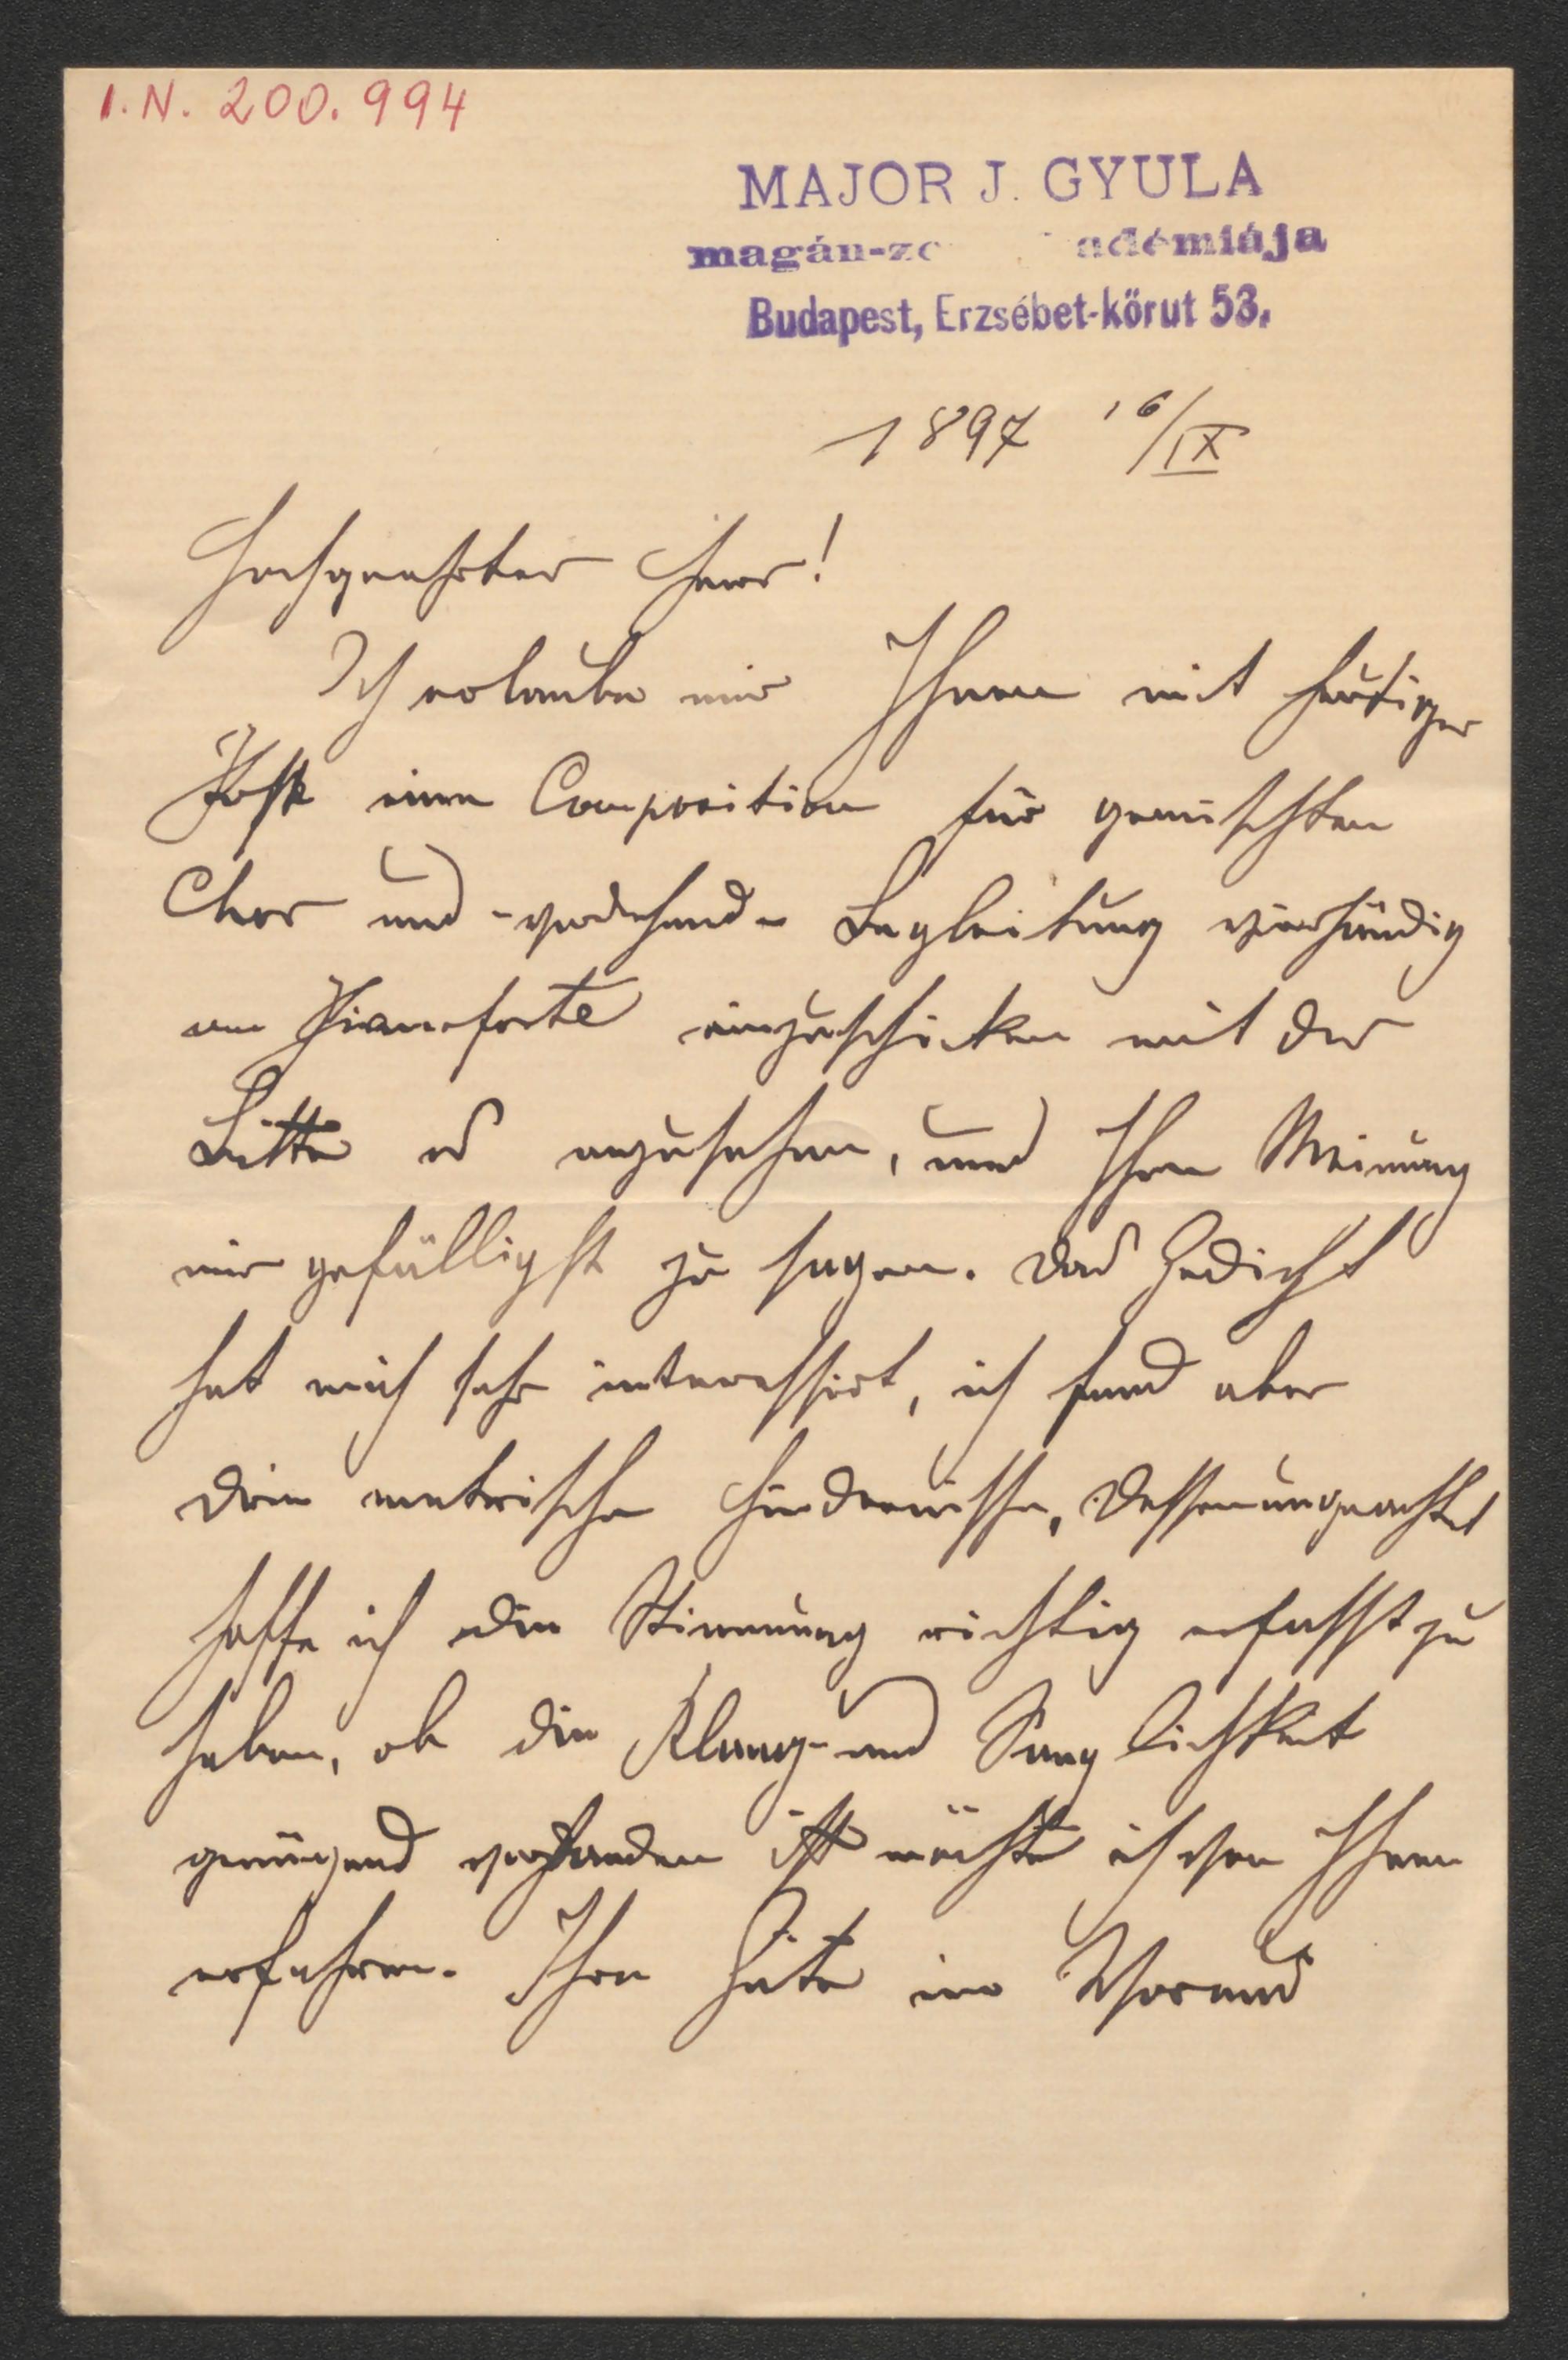 I. N. 200.994
MAJOR J. GYULA
magán-ze adémiája
Budapest, Erzsébet-körut 53.
1897 16/IX
Hochgeehrter Herr!
Ich erlaube mir Ihnen mit heutiger
Post eine Composition für gemischten
Chor und Begleitung vierhändig
am Pianoforte einzuschicken mit der
Bitte es anzusehen, und Ihre Meinung
mir gefälligst zu sagen. Das Gedicht
hat mich sehr interessirt, ich fand aber
drin metrische Hindernisse, Dessenungeachtet
hoffe ich die Stimmung richtig erfasst zu
haben, ob die Klang- und Sanglichkeit
genügend vorhanden ist möchte ich von Ihnen
erfahren. Ihre Güte im Voraus